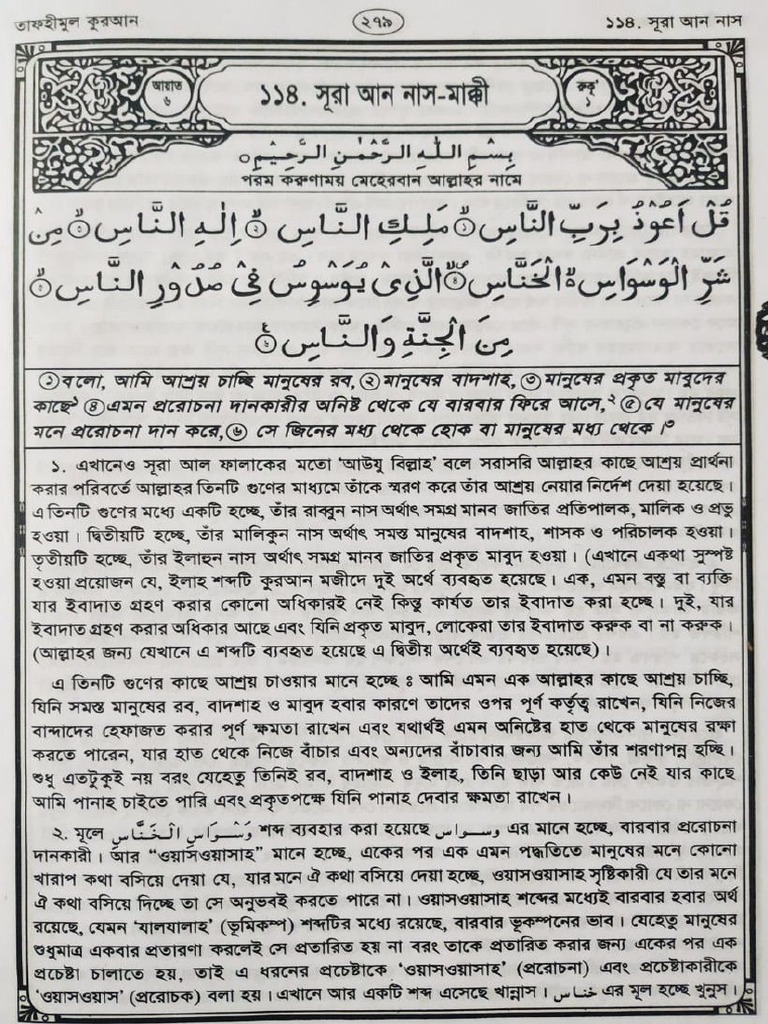 তাফহীমুল কুরআন
২৭৯
১১৪. সূরা আন নাস
আয়াত
৬
১১৪. সূরা আন নাস-মাক্কী
রুকূ'
১
بِسْمِ اللهِ الرَّحْمٰنِ الرَّحِيْمِ
পরম করুণাময় মেহেরবান আল্লাহর নামে
قُلْ اَعُوْذُ بِرَبِّ النَّاسِ ۝١ مَلِكِ النَّاسِ ۝٢ اِلٰهِ النَّاسِ ۝٣ مِنْ
شَرِّ الْوَسْوَاسِ الْخَنَّاسِ ۝٤ الَّذِىْ يُوَسْوِسُ فِىْ صُدُوْرِ النَّاسِ ۝٥
مِنَ الْجِنَّةِ وَالنَّاسِ ۝٦
①বলো, আমি আশ্রয় চাচ্ছি মানুষের রব, ②মানুষের বাদশাহ, ③মানুষের প্রকৃত মাবুদের
কাছে১ ④এমন প্ররোচনা দানকারীর অনিষ্ট থেকে যে বারবার ফিরে আসে,২ ⑤যে মানুষের
মনে প্ররোচনা দান করে, ⑥সে জিনের মধ্য থেকে হোক বা মানুষের মধ্য থেকে।৩
১. এখানেও সূরা আল ফালাকের মতো 'আউযু বিল্লাহ' বলে সরাসরি আল্লাহর কাছে আশ্রয় প্রার্থনা
করার পরিবর্তে আল্লাহর তিনটি গুণের মাধ্যমে তাঁকে স্মরণ করে তাঁর আশ্রয় নেয়ার নির্দেশ দেয়া হয়েছে।
এ তিনটি গুণের মধ্যে একটি হচ্ছে, তাঁর রাব্বুন নাস অর্থাৎ সমগ্র মানব জাতির প্রতিপালক, মালিক ও প্রভু
হওয়া। দ্বিতীয়টি হচ্ছে, তাঁর মালিকুন নাস অর্থাৎ সমস্ত মানুষের বাদশাহ, শাসক ও পরিচালক হওয়া।
তৃতীয়টি হচ্ছে, তাঁর ইলাহুন নাস অর্থাৎ সমগ্র মানব জাতির প্রকৃত মাবুদ হওয়া। (এখানে একথা সুস্পষ্ট
হওয়া প্রয়োজন যে, ইলাহ শব্দটি কুরআন মজীদে দুই অর্থে ব্যবহৃত হয়েছে। এক, এমন বস্তু বা ব্যক্তি
যার ইবাদাত গ্রহণ করার কোনো অধিকারই নেই কিন্তু কার্যত তার ইবাদাত করা হচ্ছে। দুই, যার
ইবাদাত গ্রহণ করার অধিকার আছে এবং যিনি প্রকৃত মাবুদ, লোকেরা তার ইবাদাত করুক বা না করুক।
(আল্লাহর জন্য যেখানে এ শব্দটি ব্যবহৃত হয়েছে এ দ্বিতীয় অর্থেই ব্যবহৃত হয়েছে)।
এ তিনটি গুণের কাছে আশ্রয় চাওয়ার মানে হচ্ছে ঃ আমি এমন এক আল্লাহর কাছে আশ্রয় চাচ্ছি,
যিনি সমস্ত মানুষের রব, বাদশাহ ও মাবুদ হবার কারণে তাদের ওপর পূর্ণ কর্তৃত্ব রাখেন, যিনি নিজের
বান্দাদের হেফাজত করার পূর্ণ ক্ষমতা রাখেন এবং যথার্থই এমন অনিষ্টের হাত থেকে মানুষের রক্ষা
করতে পারেন, যার হাত থেকে নিজে বাঁচার এবং অন্যদের বাঁচাবার জন্য আমি তাঁর শরণাপন্ন হচ্ছি।
শুধু এতটুকুই নয় বরং যেহেতু তিনিই রব, বাদশাহ ও ইলাহ, তিনি ছাড়া আর কেউ নেই যার কাছে
আমি পানাহ চাইতে পারি এবং প্রকৃতপক্ষে যিনি পানাহ দেবার ক্ষমতা রাখেন।
২. মূলে وَسْوَاسِ الْخَنَّاسِ শব্দ ব্যবহার করা হয়েছে وسواس এর মানে হচ্ছে, বারবার প্ররোচনা
দানকারী। আর "ওয়াসওয়াসাহ" মানে হচ্ছে, একের পর এক এমন পদ্ধতিতে মানুষের মনে কোনো
খারাপ কথা বসিয়ে দেয়া যে, যার মনে ঐ কথা বসিয়ে দেয়া হচ্ছে, ওয়াসওয়াসাহ সৃষ্টিকারী যে তার মনে
ঐ কথা বসিয়ে দিচ্ছে তা সে অনুভবই করতে পারে না। ওয়াসওয়াসাহ শব্দের মধ্যেই বারবার হবার অর্থ
রয়েছে, যেমন 'যালযালাহ' (ভূমিকম্প) শব্দটির মধ্যে রয়েছে, বারবার ভূকম্পনের ভাব। যেহেতু মানুষের
শুধুমাত্র একবার প্রতারণা করলেই সে প্রতারিত হয় না বরং তাকে প্রতারিত করার জন্য একের পর এক
প্রচেষ্টা চালাতে হয়, তাই এ ধরনের প্রচেষ্টাকে 'ওয়াসওয়াসাহ' (প্ররোচনা) এবং প্রচেষ্টাকারীকে
'ওয়াসওয়াস' (প্ররোচক) বলা হয়। এখানে আর একটি শব্দ এসেছে খান্নাস। خناس এর মূল হচ্ছে খুনুস।